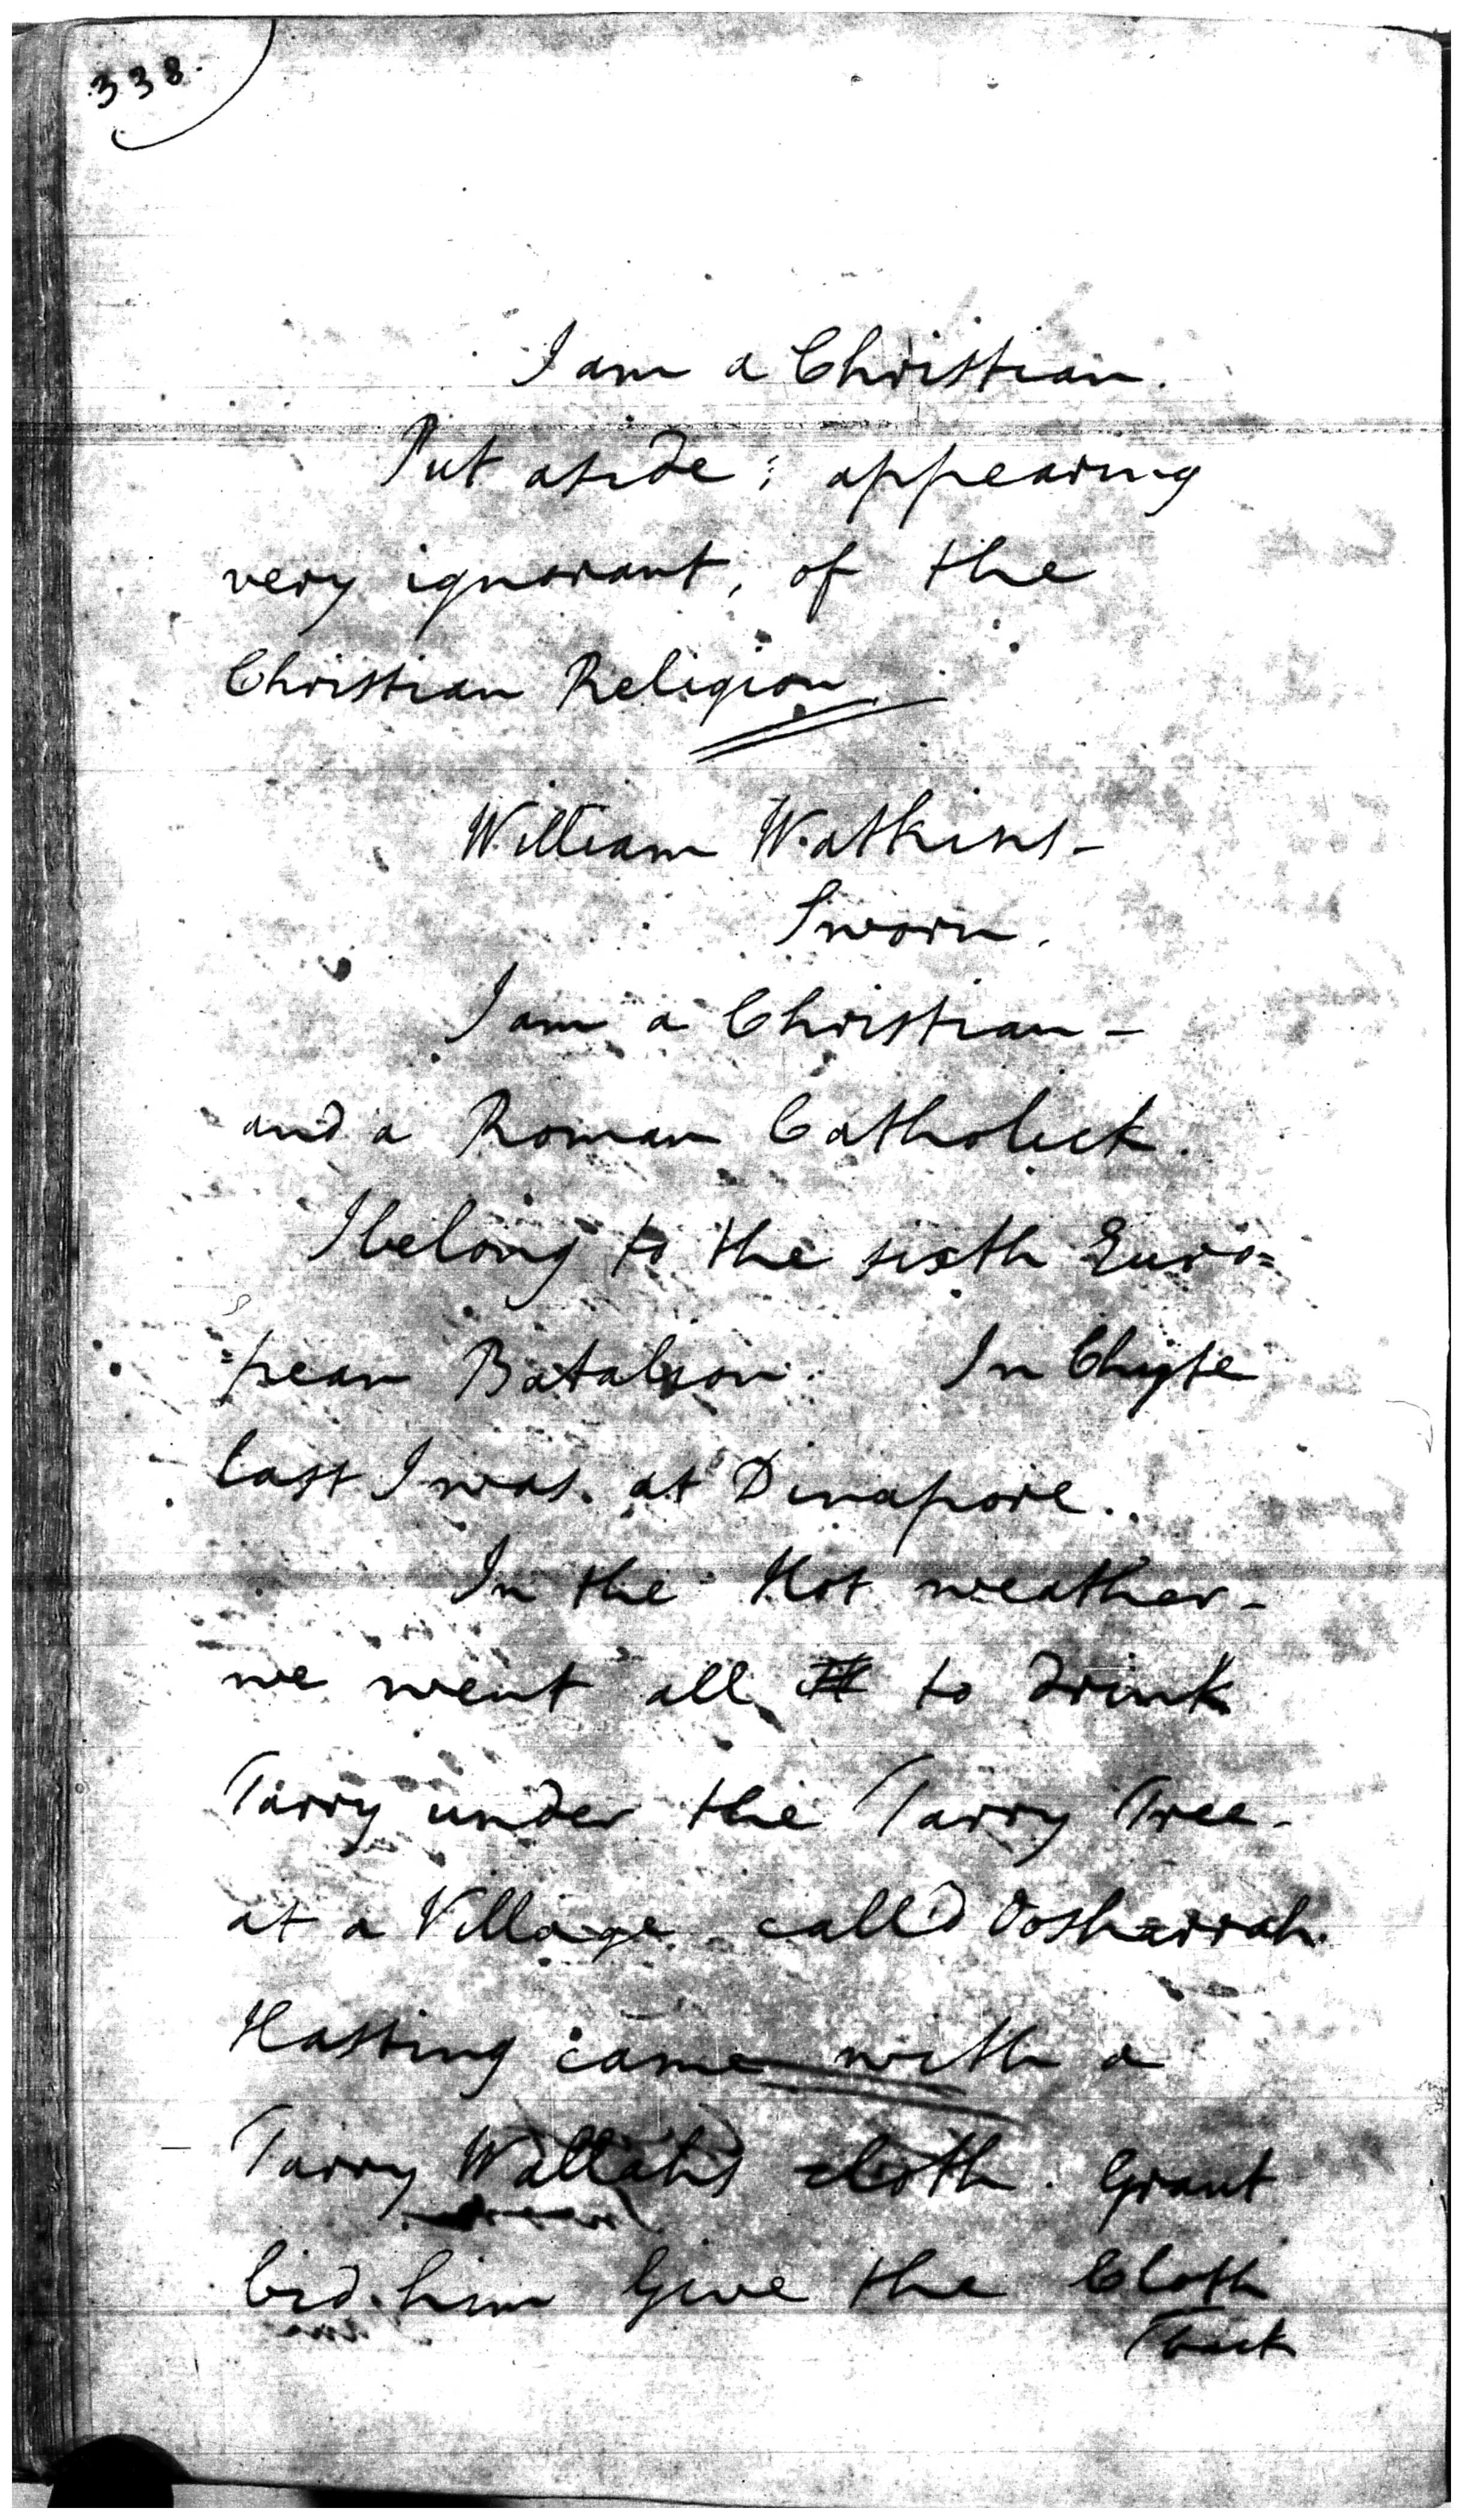 338.
I am a Christian.
Put aside; appearing
very ignorant, of the
Christian Religion
William Watkins -
Sworn.
I am a Christian -
and a Roman Catholick.
I belong to the sixth Euro=
=pean Batalion. In Chyte
last I was at Dinapore.
In the Hot weather -
we went all to drink
Tarry under the Tarry Tree -
at a Village call'd
Hasting came with a
Tarry Wallahs cloth. Grant
bid him Give the Cloth
Back